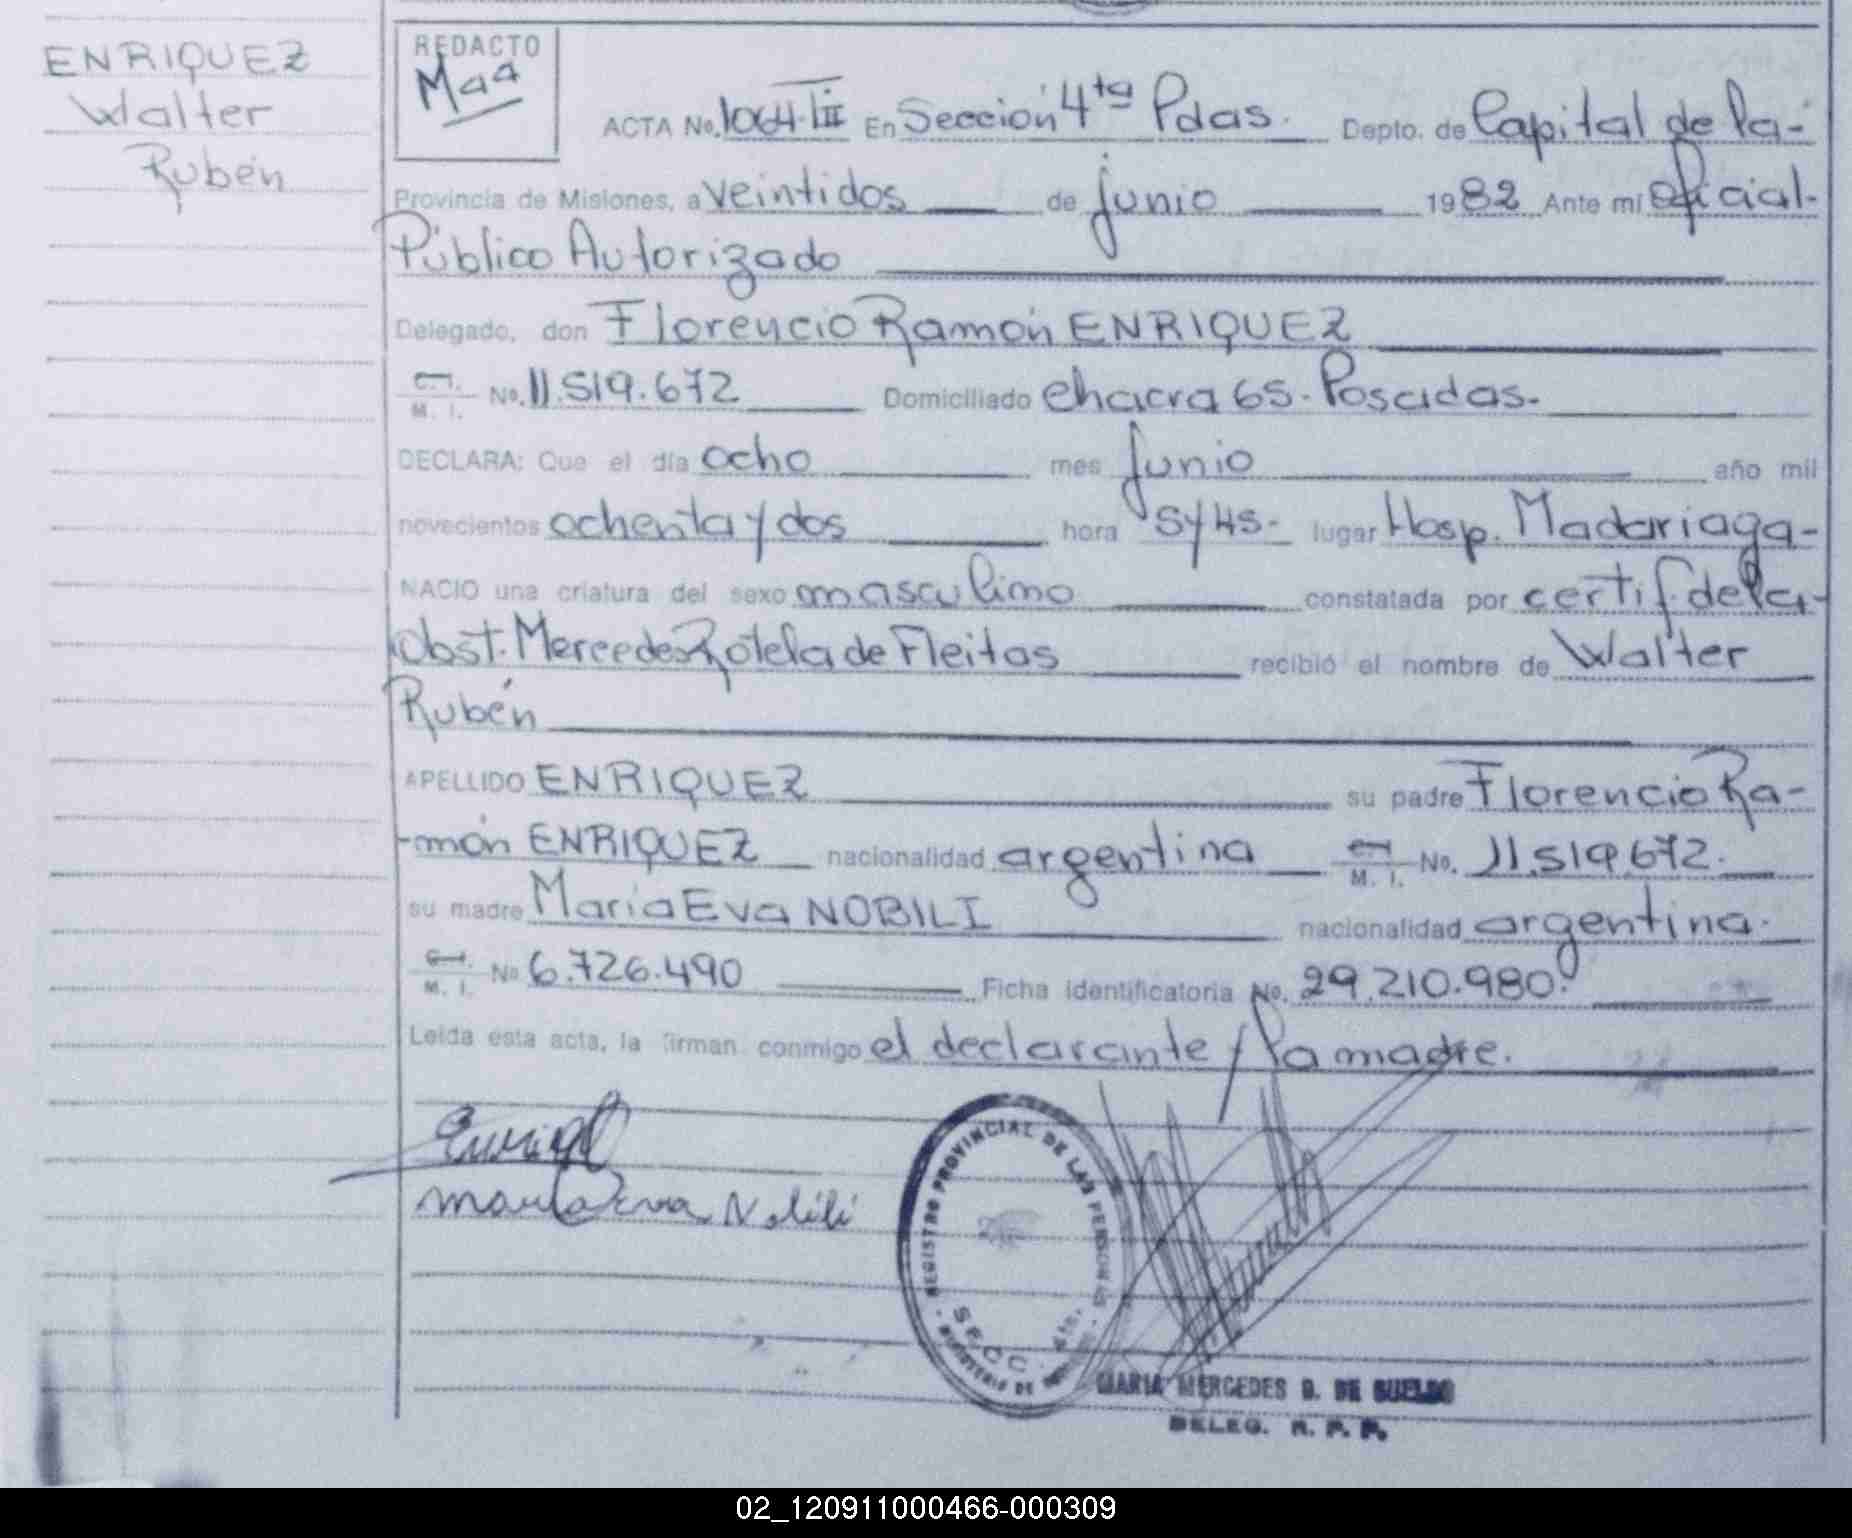 ENRIQUEZ
Walter
Rubén
REDACTO
ACTA No. 1064-III En Sección 4ta Pdas. Depto. de Capital de la-
Provincia de Misiones, a veintidos de junio 1982 Ante mí oficial-
Público Autorizado
Delegado, don Florencio Ramón ENRIQUEZ
C.I. M. I. No. 11.519.672 Domiciliado chacra 65. Posadas.
DECLARA: Que el día ocho mes junio año mil
novecientos ochenta y dos hora 5y45. lugar Hosp. Madariaga-
NACIO una criatura del sexo masculino constatada por certif. de la-
Obst. Mercedes Rotela de Fleitas recibió el nombre de Walter
Rubén
APELLIDO ENRIQUEZ su padre Florencio Ra-
-món ENRIQUEZ nacionalidad argentina C.I. M. I. No. 11.519.672.
su madre María Eva NOBILI nacionalidad argentina.
C.I. M. I. No 6.726.490 Ficha identificatoria No. 29.210.980.
Leída esta acta, la firman conmigo el declarante y la madre.
Maria Eva Nobili
REGISTRO PROVINCIAL DE LAS PERSONAS
MINISTERIO DE
MARIA MERCEDES B. DE SUELDO
DELEG. R. P. P.
02_120911000466-000309